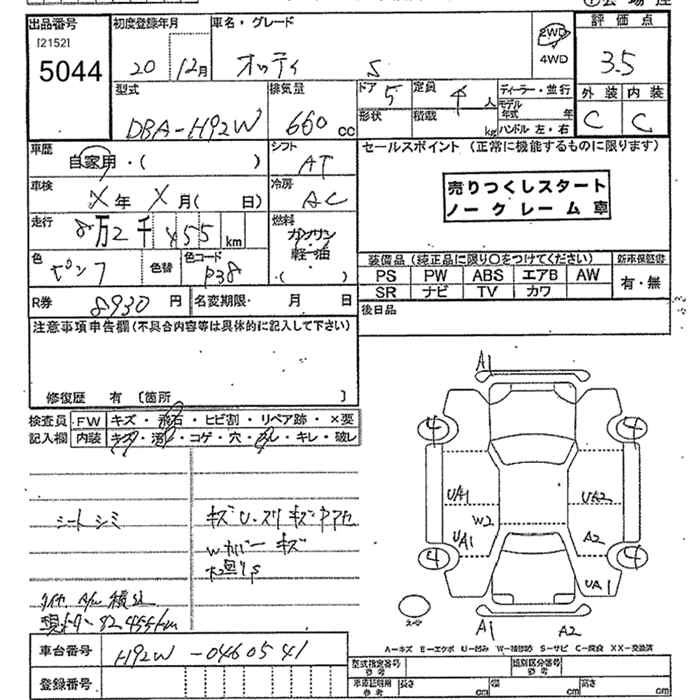 出品番号 初度登録年月 車名・グレード 評価点
[2152]
5044
20 12月 オッティ S 2WD 4WD 3.5
型式 排気量 ドア 5 定員 4 人 ディーラー・並行 外装 内装
DBA-H92W 660 cc 形状 積載 kg モデル年式 年 ハンドル 左・右 C C
車歴 自家用・( ) シフト AT セールスポイント (正常に機能するものに限ります)
車検 X年 X月( 日) 冷房 AC
売りつくしスタート
ノークレーム車
走行 8万2千455 km 燃料 ガソリン・軽・油・( )
色 ピンク 色替 色コード P38
装備品(純正品に限り○をつけてください) 新車保証書
PS PW ABS エアB AW 有・無
SR ナビ TV カワ
R券 8930 円 名変期限・ 月 日 後日品
注意事項申告欄(不具合内容等は具体的に記入して下さい)
修復歴 有 [箇所 ]
検査員 FW キズ・飛石・ヒビ割・リペア跡・×要
記入欄 内装 キズ・汚れ・コゲ・穴・スレ・キレ・破し
シートシミ
キズU.スリキズ
Wカバーキズ
タイヤ A/W 積込
現メーター 82455km
A1
4 4
UA1 UA2
W2
UA1 A2
4 4
UA1
スペア
A1 A2
A-キズ E-エクボ U-凹み W-補修跡 S-サビ C-腐食 XX-交換済
車台番号 H92W-0460541
登録番号
型式指定番号 参考 類別区分番号 参考
車庫証明用 参考 長さ cm 幅 cm 高さ cm